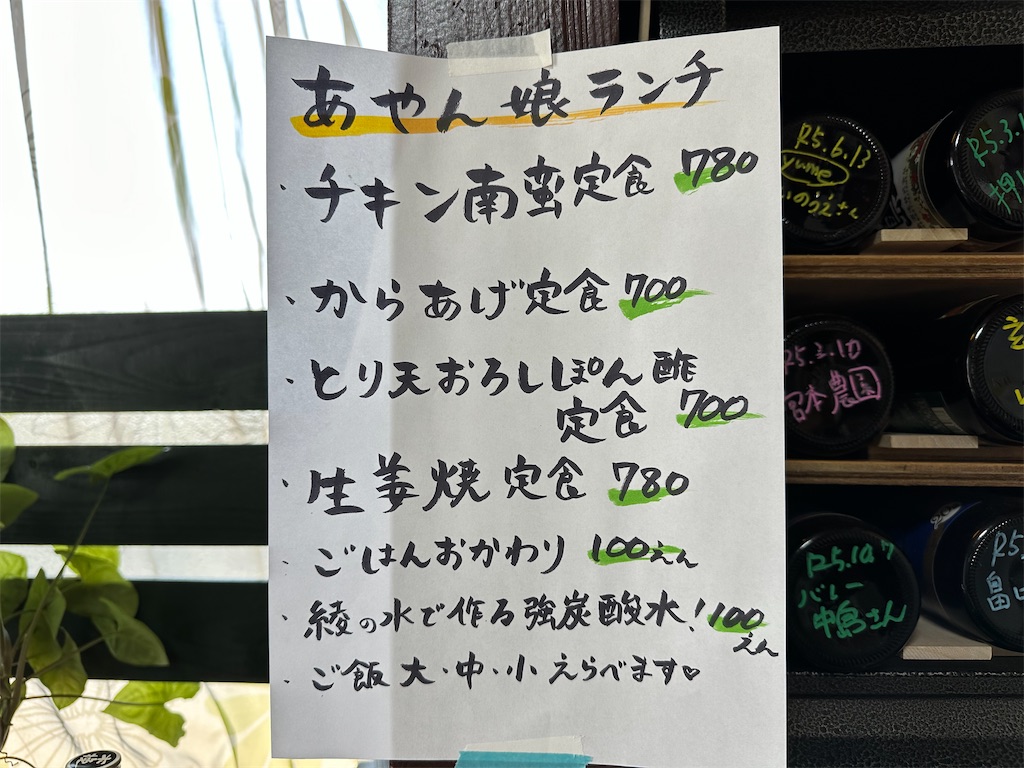 あやん娘ランチ
・チキン南蛮定食 780
・からあげ定食 700
・とり天おろしぽん酢
定食 700
・生姜焼定食 780
・ごはんおかわり 100えん
・綾の水で作る強炭酸水! 100
えん
・ご飯 大・中・小 えらべます♡
R5.6.13
yume
いのうえさん
R5.3.1
R5.3.10
宮本農園
R5.10.7
バレー
中島さん
R5.
畠田